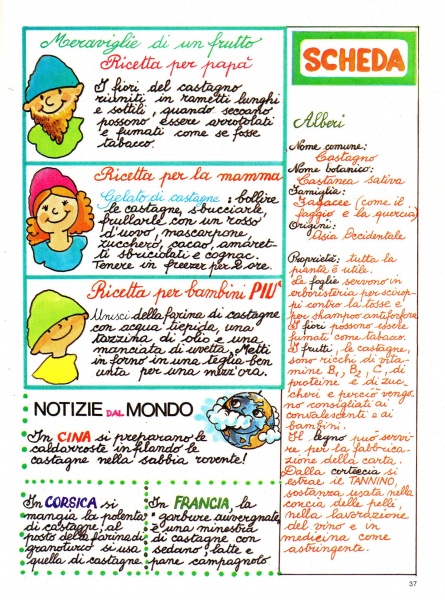 Meraviglie di un frutto
Ricetta per papà
I fiori del castagno
riuniti in rametti lunghi
e sottili, quando seccano
possono essere arrotolati
e fumati come se fosse
tabacco.
Ricetta per la mamma
Gelato di castagne: bollire
le castagne, sbucciarle,
frullarle con un rosso
d'uovo, mascarpone,
zucchero, cacao, amaret-
ti sbriciolati e cognac.
Tenere in freezer per 2 ore.
Ricetta per bambini PIU'
Unisci della farina di castagne
con acqua tiepida, una
tazzina di olio e una
manciata di uvetta. Metti
in forno in una teglia ben
unta per una mezz'ora.
NOTIZIE DAL MONDO
In CINA si preparano le
caldarroste infilando le
castagne nella sabbia rovente!
In CORSICA si
mangia la polenta
di castagne, al
posto della farina di
granoturco si usa
quella di castagne
In FRANCIA, la
"garbure auvergnate"
una minestra
di castagne con
sedano, latte e
pane campagnolo
SCHEDA
Alberi
Nome comune:
Castagno
Nome botanico:
Castanea sativa
Famiglia:
Fagacee (come il
faggio e la quercia)
Origini:
Asia Occidentale
Proprietà: tutta la
pianta è utile.
Le foglie servono in
erboristeria per scirop-
pi contro la tosse e
per shampoo antiforfora.
I fiori possono essere
fumati come tabacco.
I frutti, le castagne,
sono ricchi di vita-
mine B1, B2, C, di
proteine e di zuc-
cheri e perciò vengo-
no consigliati ai
convalescenti e ai
bambini.
Il legno può servi-
re per la fabbrica-
zione della carta.
Dalla corteccia si
estrae il TANNINO,
sostanza usata nella
concia delle pelli,
nella lavorazione
del vino e in
medicina come
astringente.
37